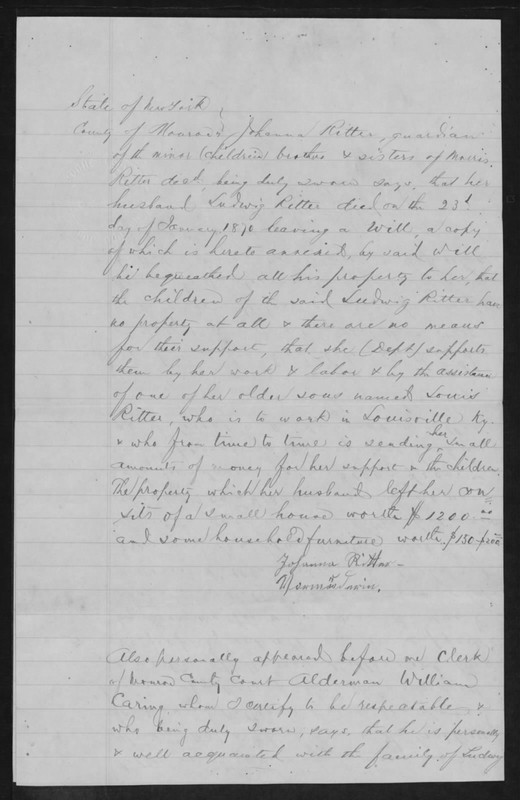 State of New York,
County of Monroe Johanna Ritter, guardian
of the minor (children) brother & sisters of Morris
Ritter decd, being duly sworn says, that her
husband Ludwig Ritter died on the 23d
day of January 1870 leaving a Will, a copy
of which is hereto annexed, by said will
he bequeathed all his property to her, that
the children of the said Ludwig Ritter have
no property at all & there are no means
for their support, that she (Dept) supports
them by her work & labor & by the assistance
of one of her older sons named Louis
Ritter, who is to work in Louisville Ky.
& who from time to time is sending her small
amounts of money for her support & the children.
The property which her husband left her con
sists of a small house worth $1200.00
and some household furniture worth $150
Johanna Ritter

Also personally appeared before me Clerk
of Monroe County Court Alderman William
Caring whom I certify to be respectable &
who being duly sworn, says, that he is personally
& well acquainted with the family of Ludwig